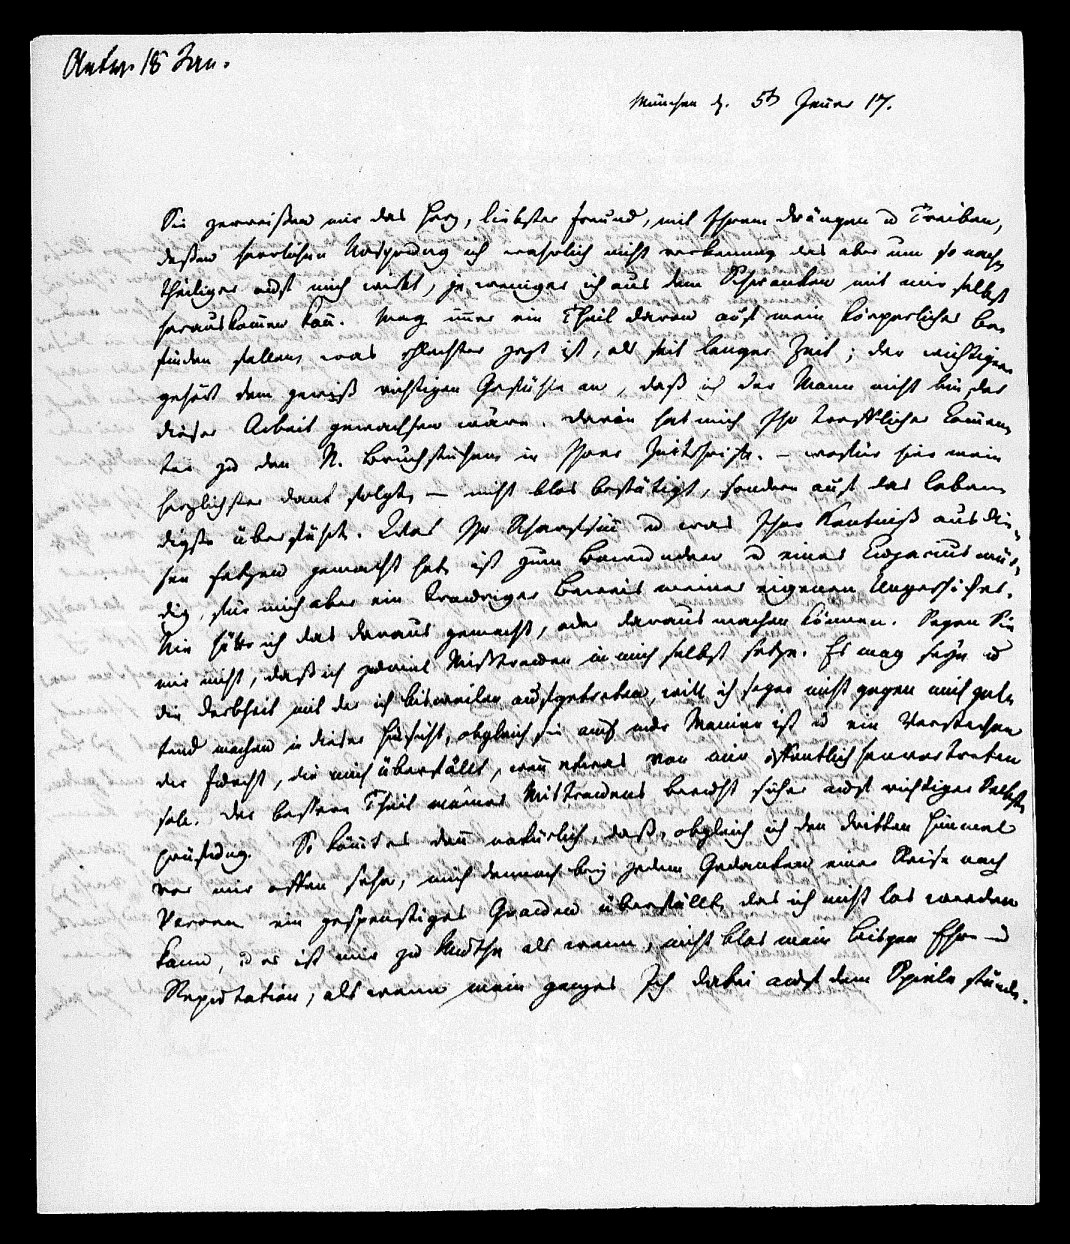 Antw. 18 Jan.
München d. 5t Januar 17.
Sie zerreißen mir das Herz, liebster Freund, mit Ihrem Drängen u Treiben,
deßen herrlichen Ursprung ich wahrlich nicht verkenne, das aber um so nach
theiliger auf mich wirkt, je weniger ich aus den Schranken mit mir selbst
herauskomen kan. Mag imer ein Theil davon auf mein körperliches Be
finden fallen, was schlechter jezt ist, als seit langer Zeit; der wichtigere
gehört dem gewiß richtigen Gefühle an, daß ich der Mann nicht bin, der
dieser Arbeit gewachsen wäre. Darin hat mich Ihr trefflicher Commen
tar zu den N. Bruchstücken in Ihrer Zeitschrift – wofür hier mein
herzlichster Dank folgt – nicht blos bestätigt, sondern auf das leben
digste überführt. Was Ihr Scharfsinn u was Ihre Kentniß aus die
sen Fetzen gemacht hat, ist zum Bewundern u eines Cujacius wür
dig, für mich aber ein trauriger Beweis meiner eigenen Ungeschicktheit.
Nie hätte ich das daraus gemacht, oder daraus machen können. Sagen Sie
mir nicht, daß ich zuviel Mißtrauen in mich selbst setze. Es mag seyn u
die Derbheit mit der ich bisweilen aufgetreten, will ich sogar nicht gegen mich gel
tend machen in dieser Hinsicht, obgleich sie auch nur Manier ist u ein Verstecken
der Furcht, die mich überfällt, wenn etwas von mir öffentlich hervortreten
soll. Der bessere Theil meines Mistrauens beruht sicher auf richtiger Selbst
prüfung. So kömt es den natürlich, daß, obgleich ich den dritten Himmel
vor mir offen sehe, mich dennoch bey jedem Gedanken einer Reise nach
Verona ein gespenstiges Grauen überfällt, das ich nicht los werden
kann, u es ist mir zu Muthe als wenn, nicht blos mein bisgen Ehre u
Reputation, als wenn mein ganzes Ich dabei auf dem Spiele stünde.